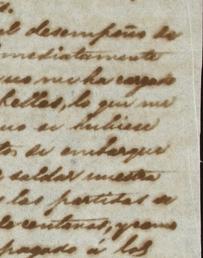 el desempeño de
mediatamente
que no ha cargado
kelles, lo que me
no se hubiese
tos de embarque
saldar nuestra
las partidas de
centavos, y como
pagado á los